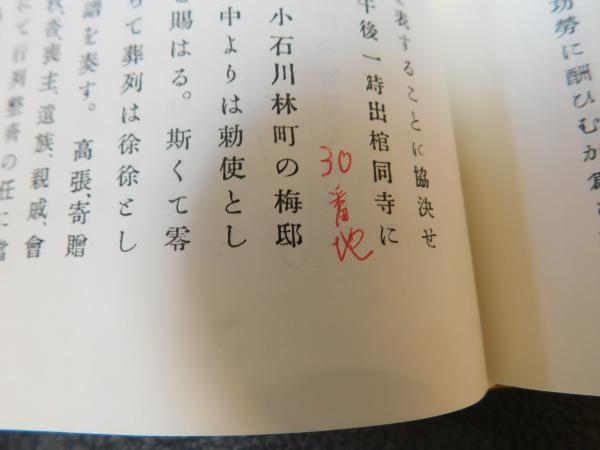 功勞に酬ひむが爲
を表することに協決せ
午後一時出棺同寺に
30番地
小石川林町の梅邸
中よりは勅使とし
賜はる。斯くて零
て葬列は徐徐とし
譜を奏す。高張、寄贈
喪主、遺族、親戚、會
にて行列整齊の任に當